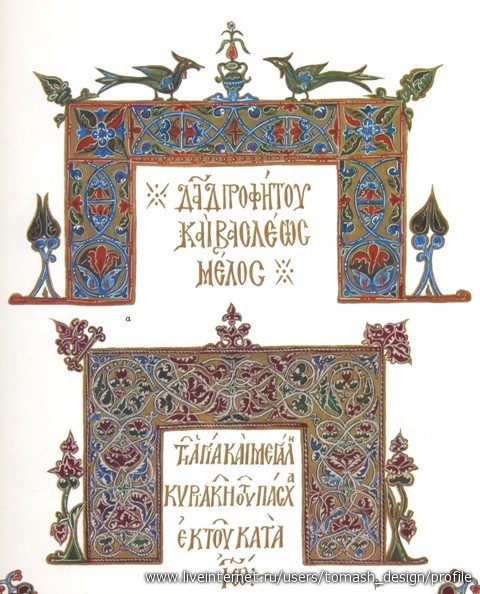 ※ ΔΑΔ ΠΡΟΦΉΤΟΥ
ΚΑΙ ΒΑCΙΛΈωC
ΜΈΛΟC ※
α
ΤΗ ΑΓΊΑ ΚΑΙ ΜΕΓΑΛΗ
ΚΥΡΙΑΚΗ ΤΟΥ ΠΑCΧΑ
ἐΚ ΤΟΥ ΚΑΤΑ
www.liveinternet.ru/users/tomash_design/profile